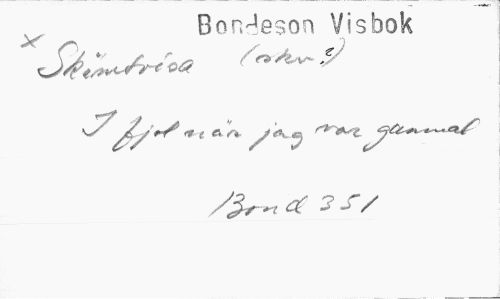 Bondeson Visbok
x Skämtvisa (skv?)
I fjol när jag var gammal
Bond 351